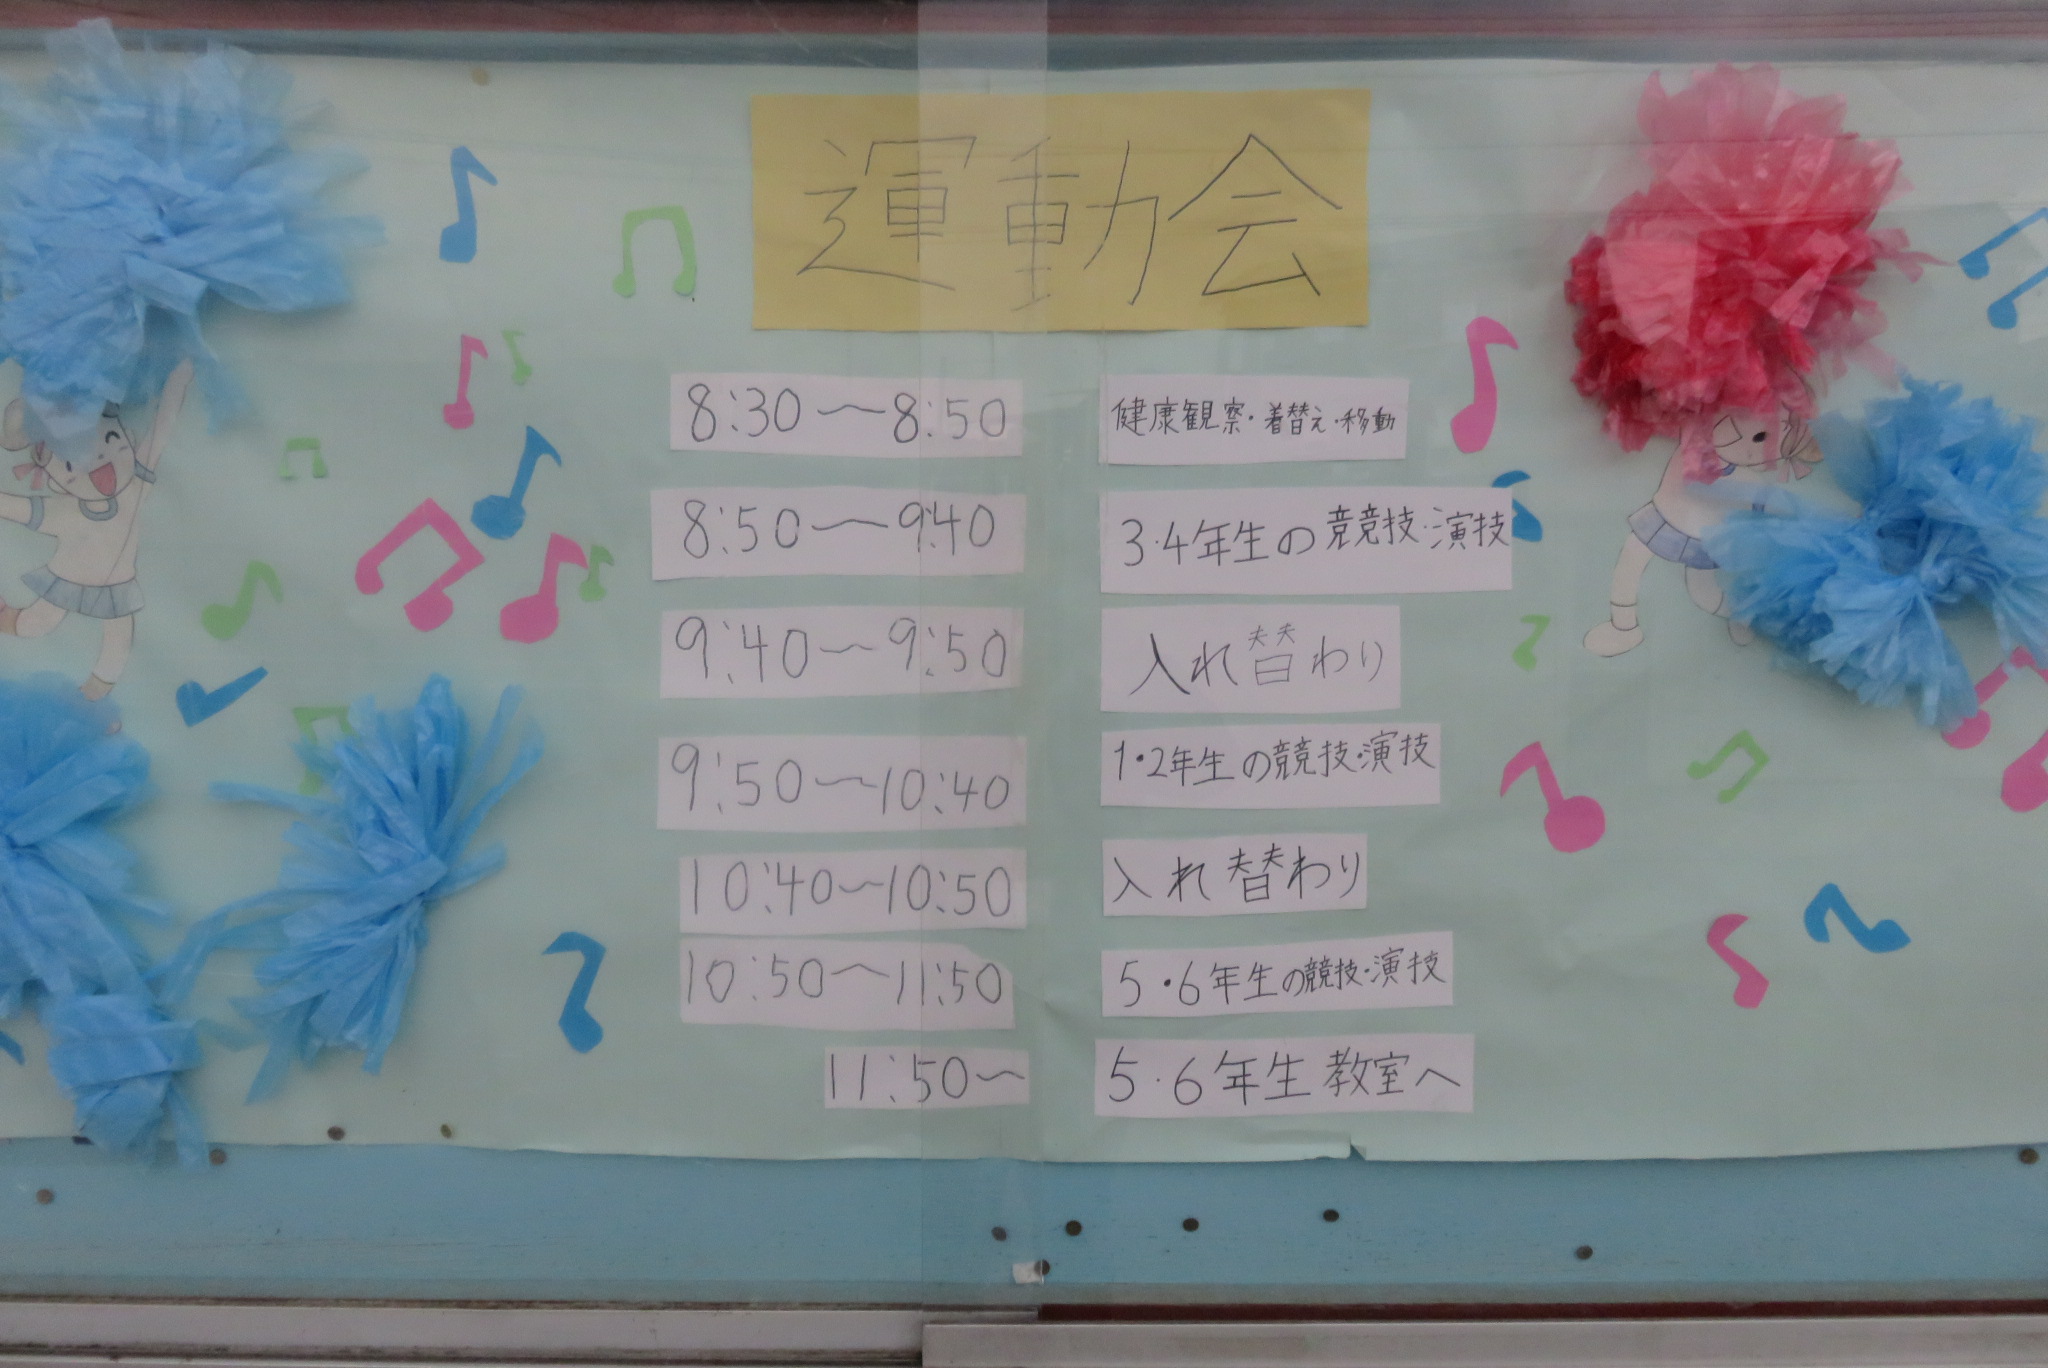 運動会
8:30〜8:50 健康観察・着替え・移動
8:50〜9:40 3・4年生の競技・演技
9:40〜9:50 入れ替わり
9:50〜10:40 1・2年生の競技・演技
10:40〜10:50 入れ替わり
10:50〜11:50 5・6年生の競技・演技
11:50〜 5・6年生教室へ